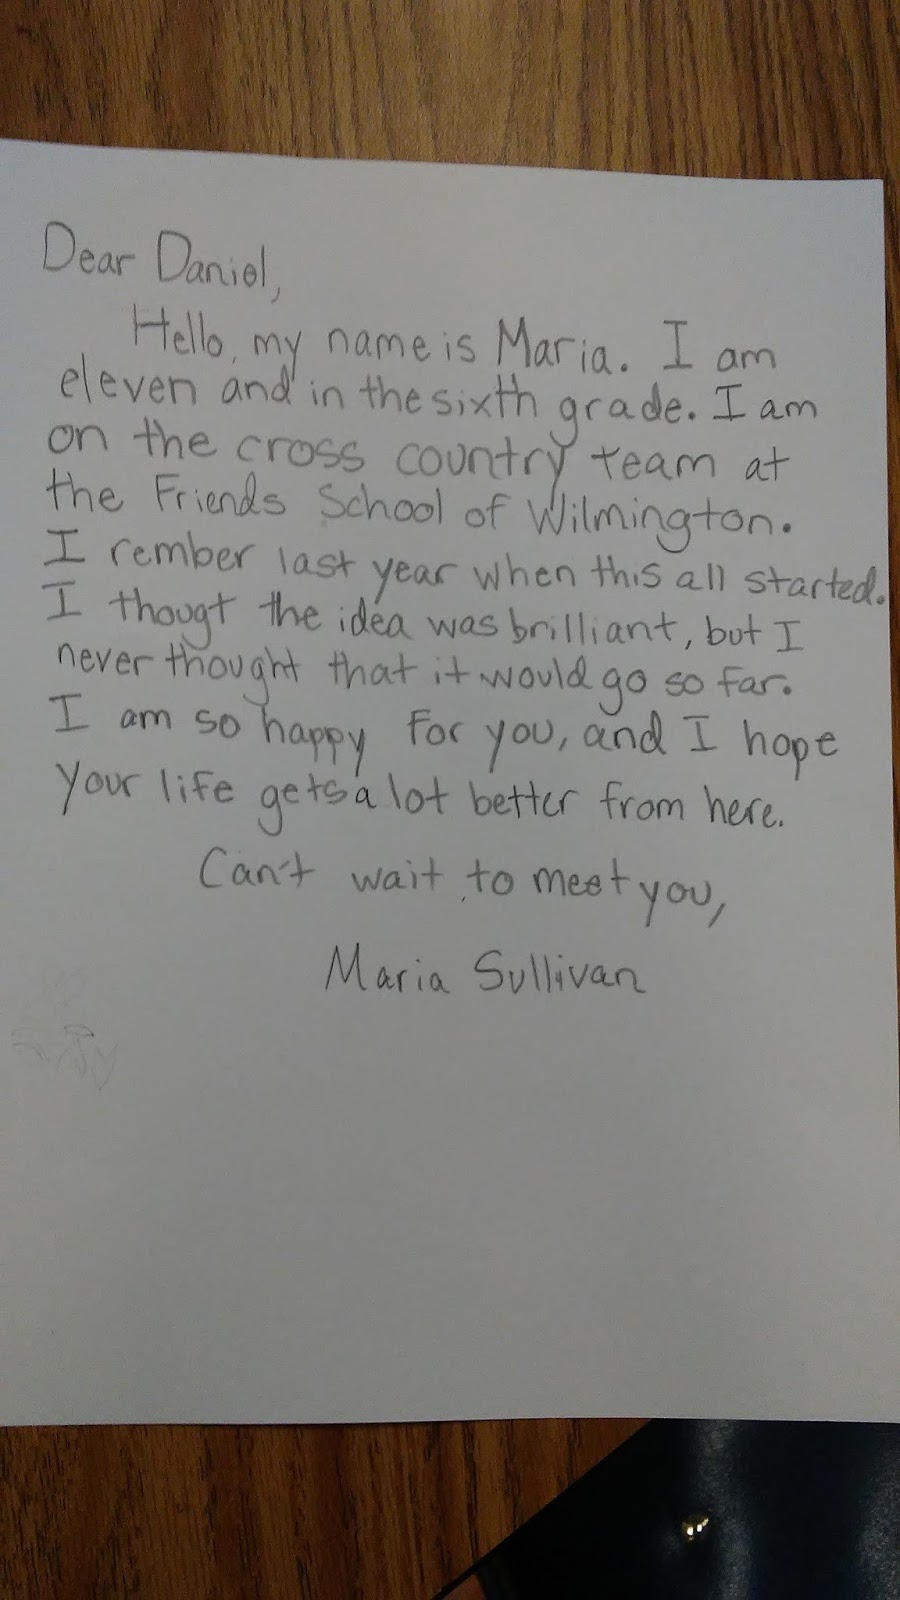 Dear Daniel,
Hello, my name is Maria. I am
eleven and in the sixth grade. I am
on the cross country team at
the Friends School of Wilmington.
I rember last year when this all started.
I thougt the idea was brilliant, but I
never thought that it would go so far.
I am so happy for you, and I hope
your life gets a lot better from here.
Can't wait to meet you,
Maria Sullivan